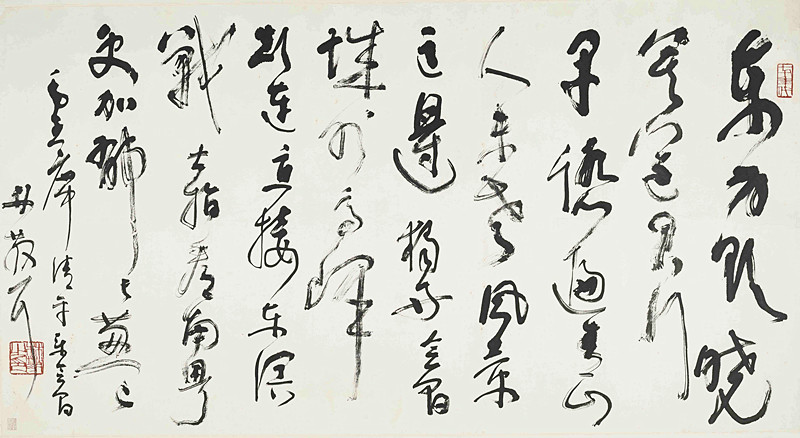 东方欲晓
莫道君行
早踏遍青山
人未老風景
这边独好会昌
城外高峰
颠连直接东溟
戰士指看南粤
更加郁郁葱葱
毛主席清平乐会昌